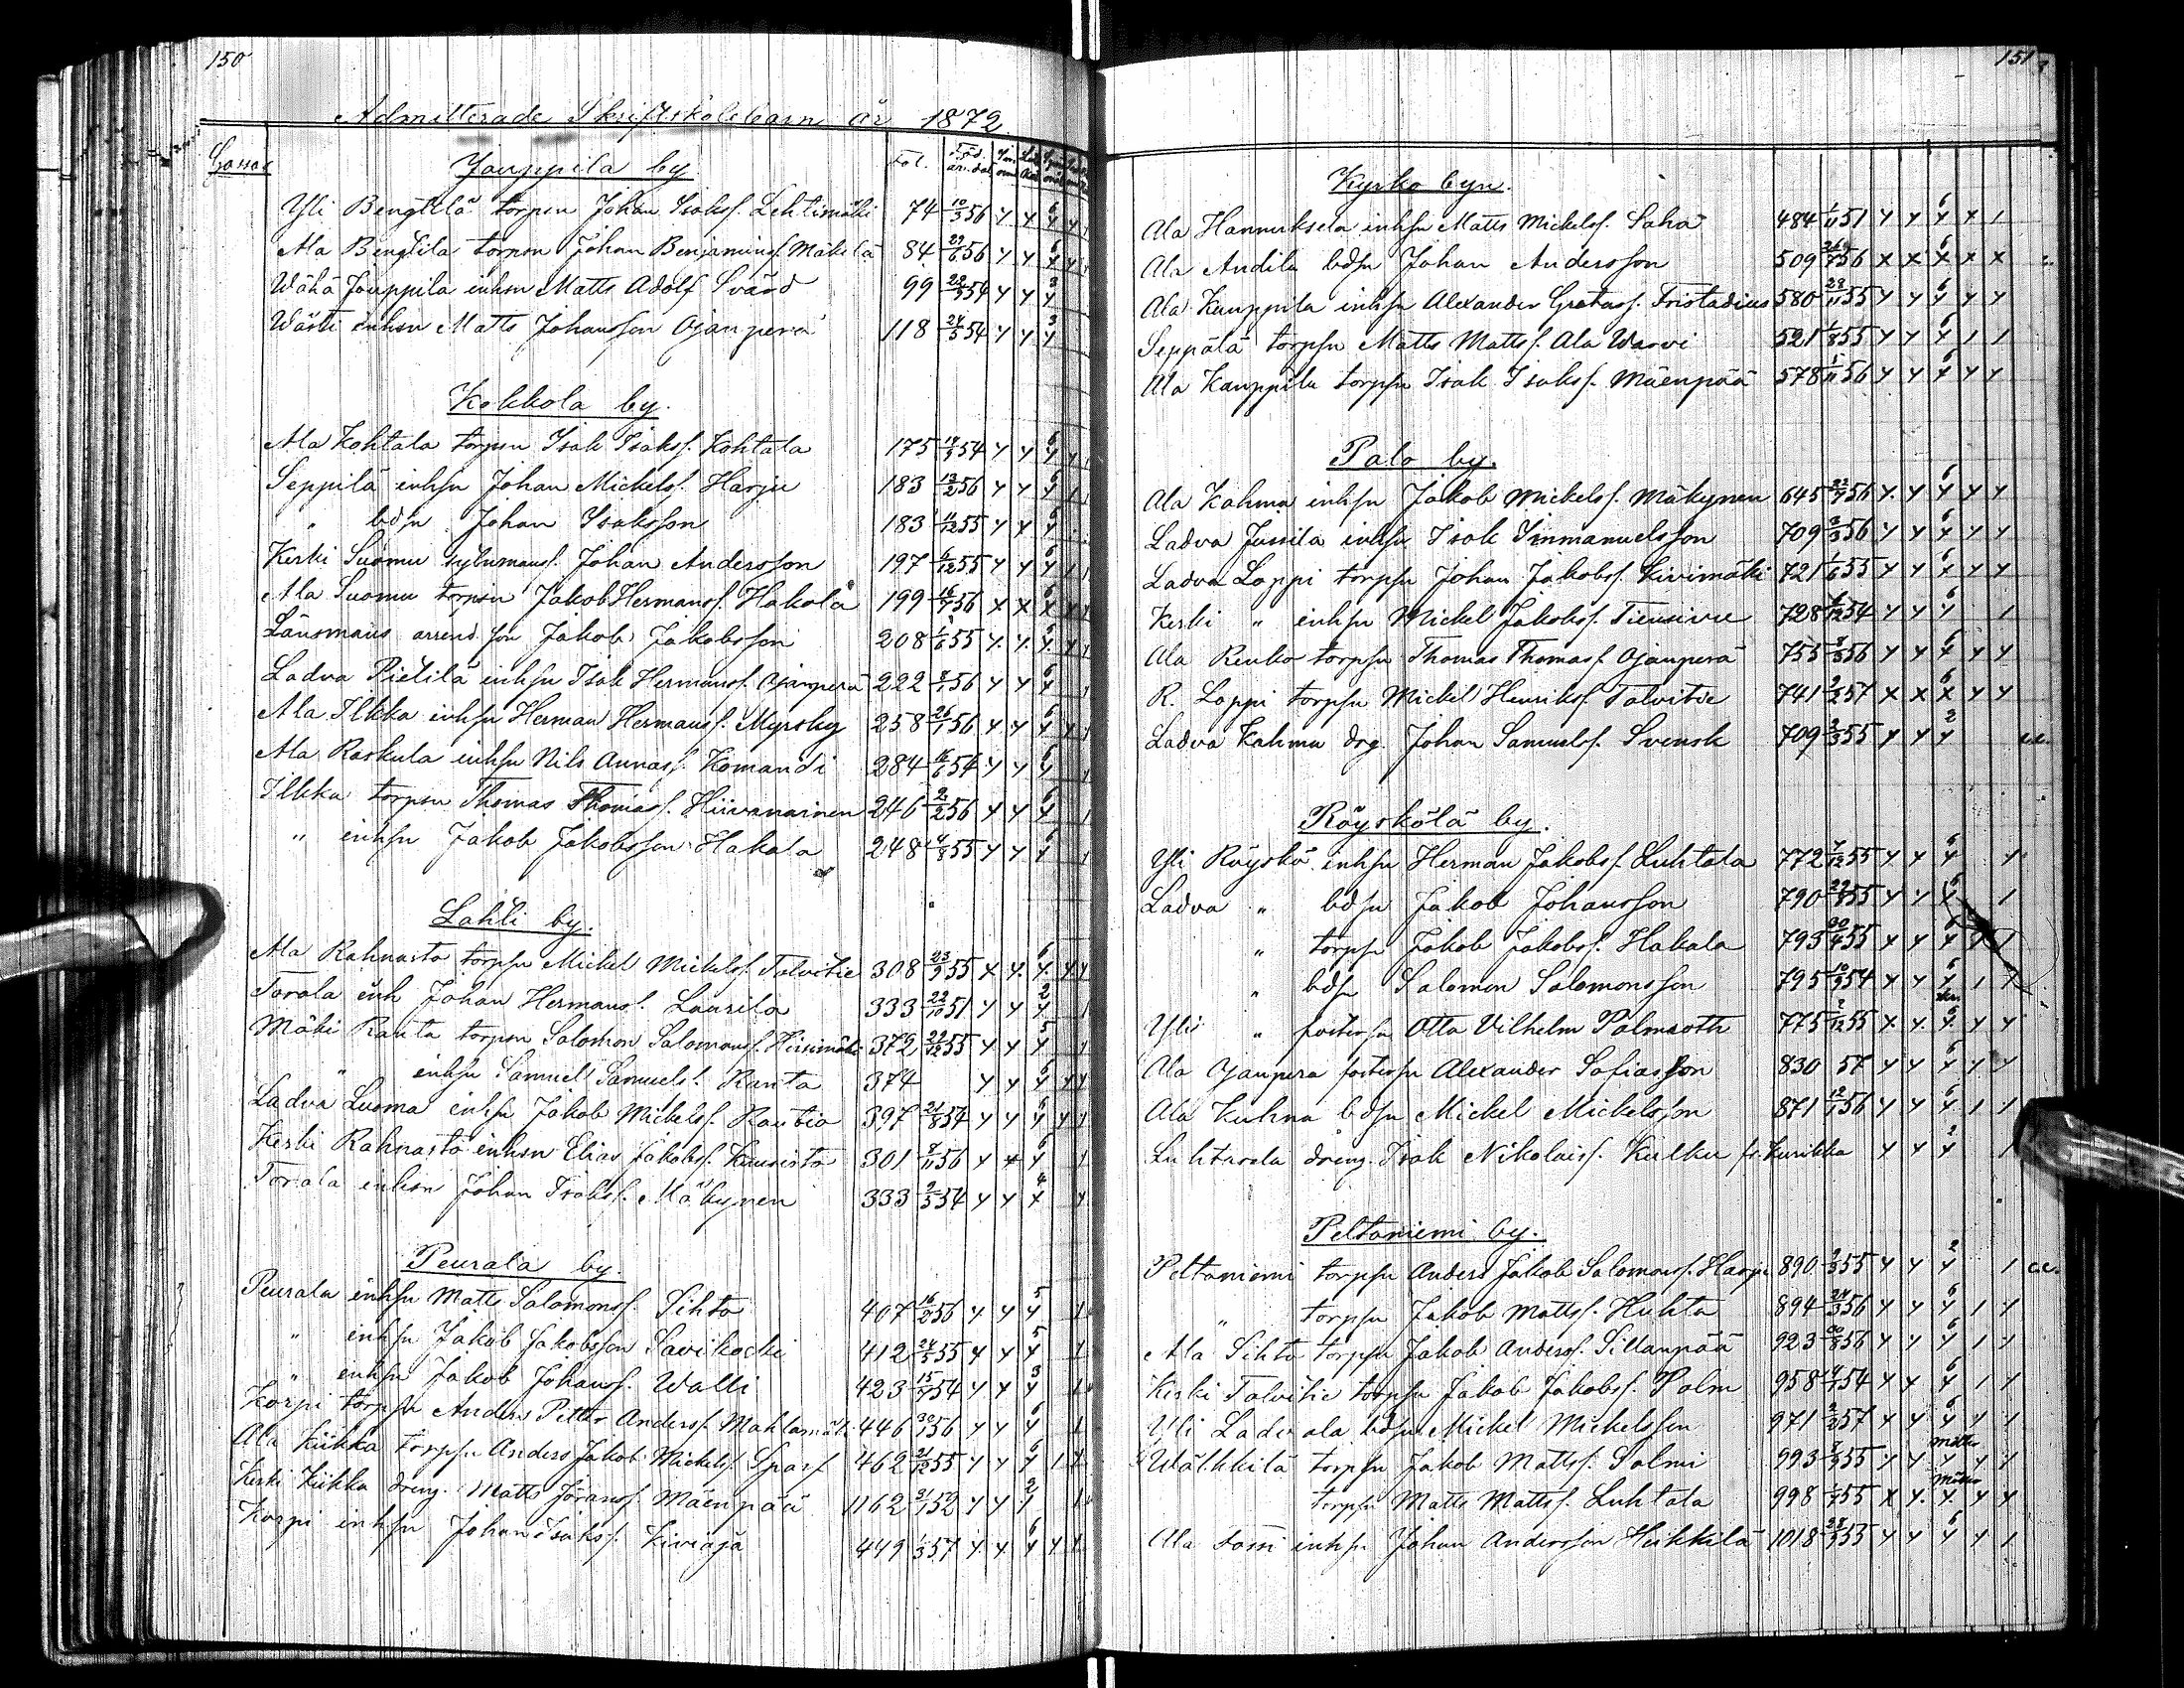 150
Admitterade Skriftskolebarn år 1872.
Gossar
Jouppila by
Fol.
Yli Bengtilä torpsn Johan Isakss. Lehtimäki 74 10/3 56 y y 6 y y
Ala Bengtila torpsn Johan Benjaminss. Mäkelä 84 29/6 56 y y 6 y y
Wähä Jouppila inhsn Matts Adolf Svärd 99 22/3 54 y y 3 y
Wästi inhsn Matts Johansson Ojanperä 118 24/5 54 y y 3 y
Kokkola by.
Ala Kohtala torpsn Isak Isakss. Kohtala 175 54 y y 6 y
Seppilä inhsn Johan Mickelss. Harju 183 12/2 56 y y 6 y
" bdsn Johan Isaksson 183 11/12 55 y x 6 y
Keski Suomu sytnmanss. Johan Andersson 197 6/12 55 y y 6 y
Ala Suomu torpsn Jakob Hermanss. Hakola 199 16/7 56 x x 6 x
Länsmans arrend. son Jakob Jakobsson 208 1/6 55 y y 5 y
Ladva Pietilä inhsn Isak Hermanss. Ojanperä 222 56 y y 6 y
Ala Ilkka inhsn Herman Hermanss. Myrsky 258 26/1 56 y y 6 y
Ala Raskula inhsn Nils Annass. Komandi 284 16/6 54 y y 6 y
Ilkka torpsn Thomas Thomass. Hiivanainen 246 2/2 56 y y 6 y
" inhsn Jakob Jakobsson Hakala 248 4/8 55 y y 6 y
Lahti by.
Ala Rahnasto torpsn Mickel Mickelss. Talvitie 308 23/9 55 x y 6 y
Torala inh Johan Hermanss. Laurila 333 22/10 51 y y 2 y
Mäki Ranta torpsn Salomon Salomonss. Hissimäki 372 22/12 55 y y 5 y
" inhsn Samuel Samuelss. Ranta 374 y y 6 y
Ladva Luoma inhsn Jakob Mickelss. Rautio 397 24/8 54 y y 6 y
Keski Rahnasto inhsn Elias Jakobss. Kuusisto 301 56 y x 6 y
Torala inhsn Johan Isakss. Mäkynen 333 2/5 54 y y 4 x
Peurala by.
Peurala inhsn Matts Salomonss. Sihto 407 16/2 56 y y 5 y
" inhsn Jakob Jakobsson Savikoski 412 24/5 55 y y 5 y
" inhsn Jakob Johanss. Walli 423 15/7 54 y y 3 y
Korpi torpsn Anders Petter Anderss. Mahlamäki 446 30/1 56 y y 6 y
Ala Kiikka torpsn Anders Jakob Mickelss. Sparf 462 21/12 55 y y 6 y
Keski Kiikka dreng. Matts Göranss. Mäenpää 1162 31/1 52 y y 2 y
Korpi inhsn Johan Isakss. Kiviojа 449 1/3 57 y y 6 y
151
Kyrko byn.
Ala Hannuksela inhsn Matts Mickelss. Saha 484 51 y y 6 y x 1
Ala Andila bdsn Johan Andersson 509 56 x x 6 x x x
Ala Kauppila inhsn Alexander Gretass. Fristadius 580 28/11 55 y y 6 y y y
Seppälä torpsn Matts Mattss. Ala Warvi 521 1/8 55 y y 6 y 1 1
Ala Kauppila torpsn Isak Isakss. Mäenpää 578 1/11 56 y y 6 y y y
Palo by.
Ala Kahma inhsn Jakob Mickelss. Mäkynen 645 22/7 56 y y 6 y y y
Ladva Jussila inhsn Isak Immanuelsson 709 3/3 56 y y 6 y y y
Ladva Loppi torpsn Johan Jakobss. Kivimäki 721 1/6 55 y y 6 y y y
Keski " inhsn Mickel Jakobss. Tiensivu 728 54 y y 6 y 1
Ala Renko torpsn Thomas Thomass. Ojanperä 755 56 y y 6 y y y
R. Loppi torpsn Mickel Henrikss. Talvitie 741 2/5 57 x x 6 x y y
Ladva Kahma drg. Johan Samuelss. Svensk 709 2/3 55 y y 2 y c.c.
Röyskölä by.
Yli Röyskö inhsn Herman Jakobss. Luhtala 772 7/12 55 y y 6 y y
Ladva " bdsn Jakob Johansson 790 22/8 55 y y 6 y 1
" torpsn Jakob Jakobss. Hakala 793 30/4 55 y y 6 y 1 1
" bdsn Salomon Salomonsson 795 10/3 54 y y 6 y 1 1
Yli " fostersn Otto Vilhelm Palmroth 775 2/12 55 x y 6 y y y
Ala Ojanpera fostersn Alexander Sofiasson 830 57 y y 6 y y y
Ala Kuhna bdsn Mickel Mickelsson 871 12/1 56 y y 6 y 1 1
Luhtasela dreng. Isak Nikolaiss. Kulku fr. Kurikka y y 2 y 1
Peltoniemi by.
Peltoniemi torpsn Anders Jakob Salomonss. Harju 890 2/3 55 y y 2 y 1 c.c.
" torpsn Jakob Mattss. Huhta 894 24/3 56 y y 6 y 1 y
Ala Sihto torpsn Jakob Anderss. Sillanpää 923 30/8 56 y y 6 y 1 y
Keski Talvitie torpsn Jakob Jakobss. Palm 958 14/1 54 y y 6 y 1 1
Yli Ladvala bdsn Mickel Mickelsson 971 2/2 57 y y 6 y y 1
Wälkkilä torpsn Jakob Mattss. Salmi 993 55 y y y y y
torpsn Matts Mattss. Luhtala 998 55 x y y y y
Ala Fossi inhsn Johan Andersson Heikkilä 1018 28/3 53 y y 6 y y 1